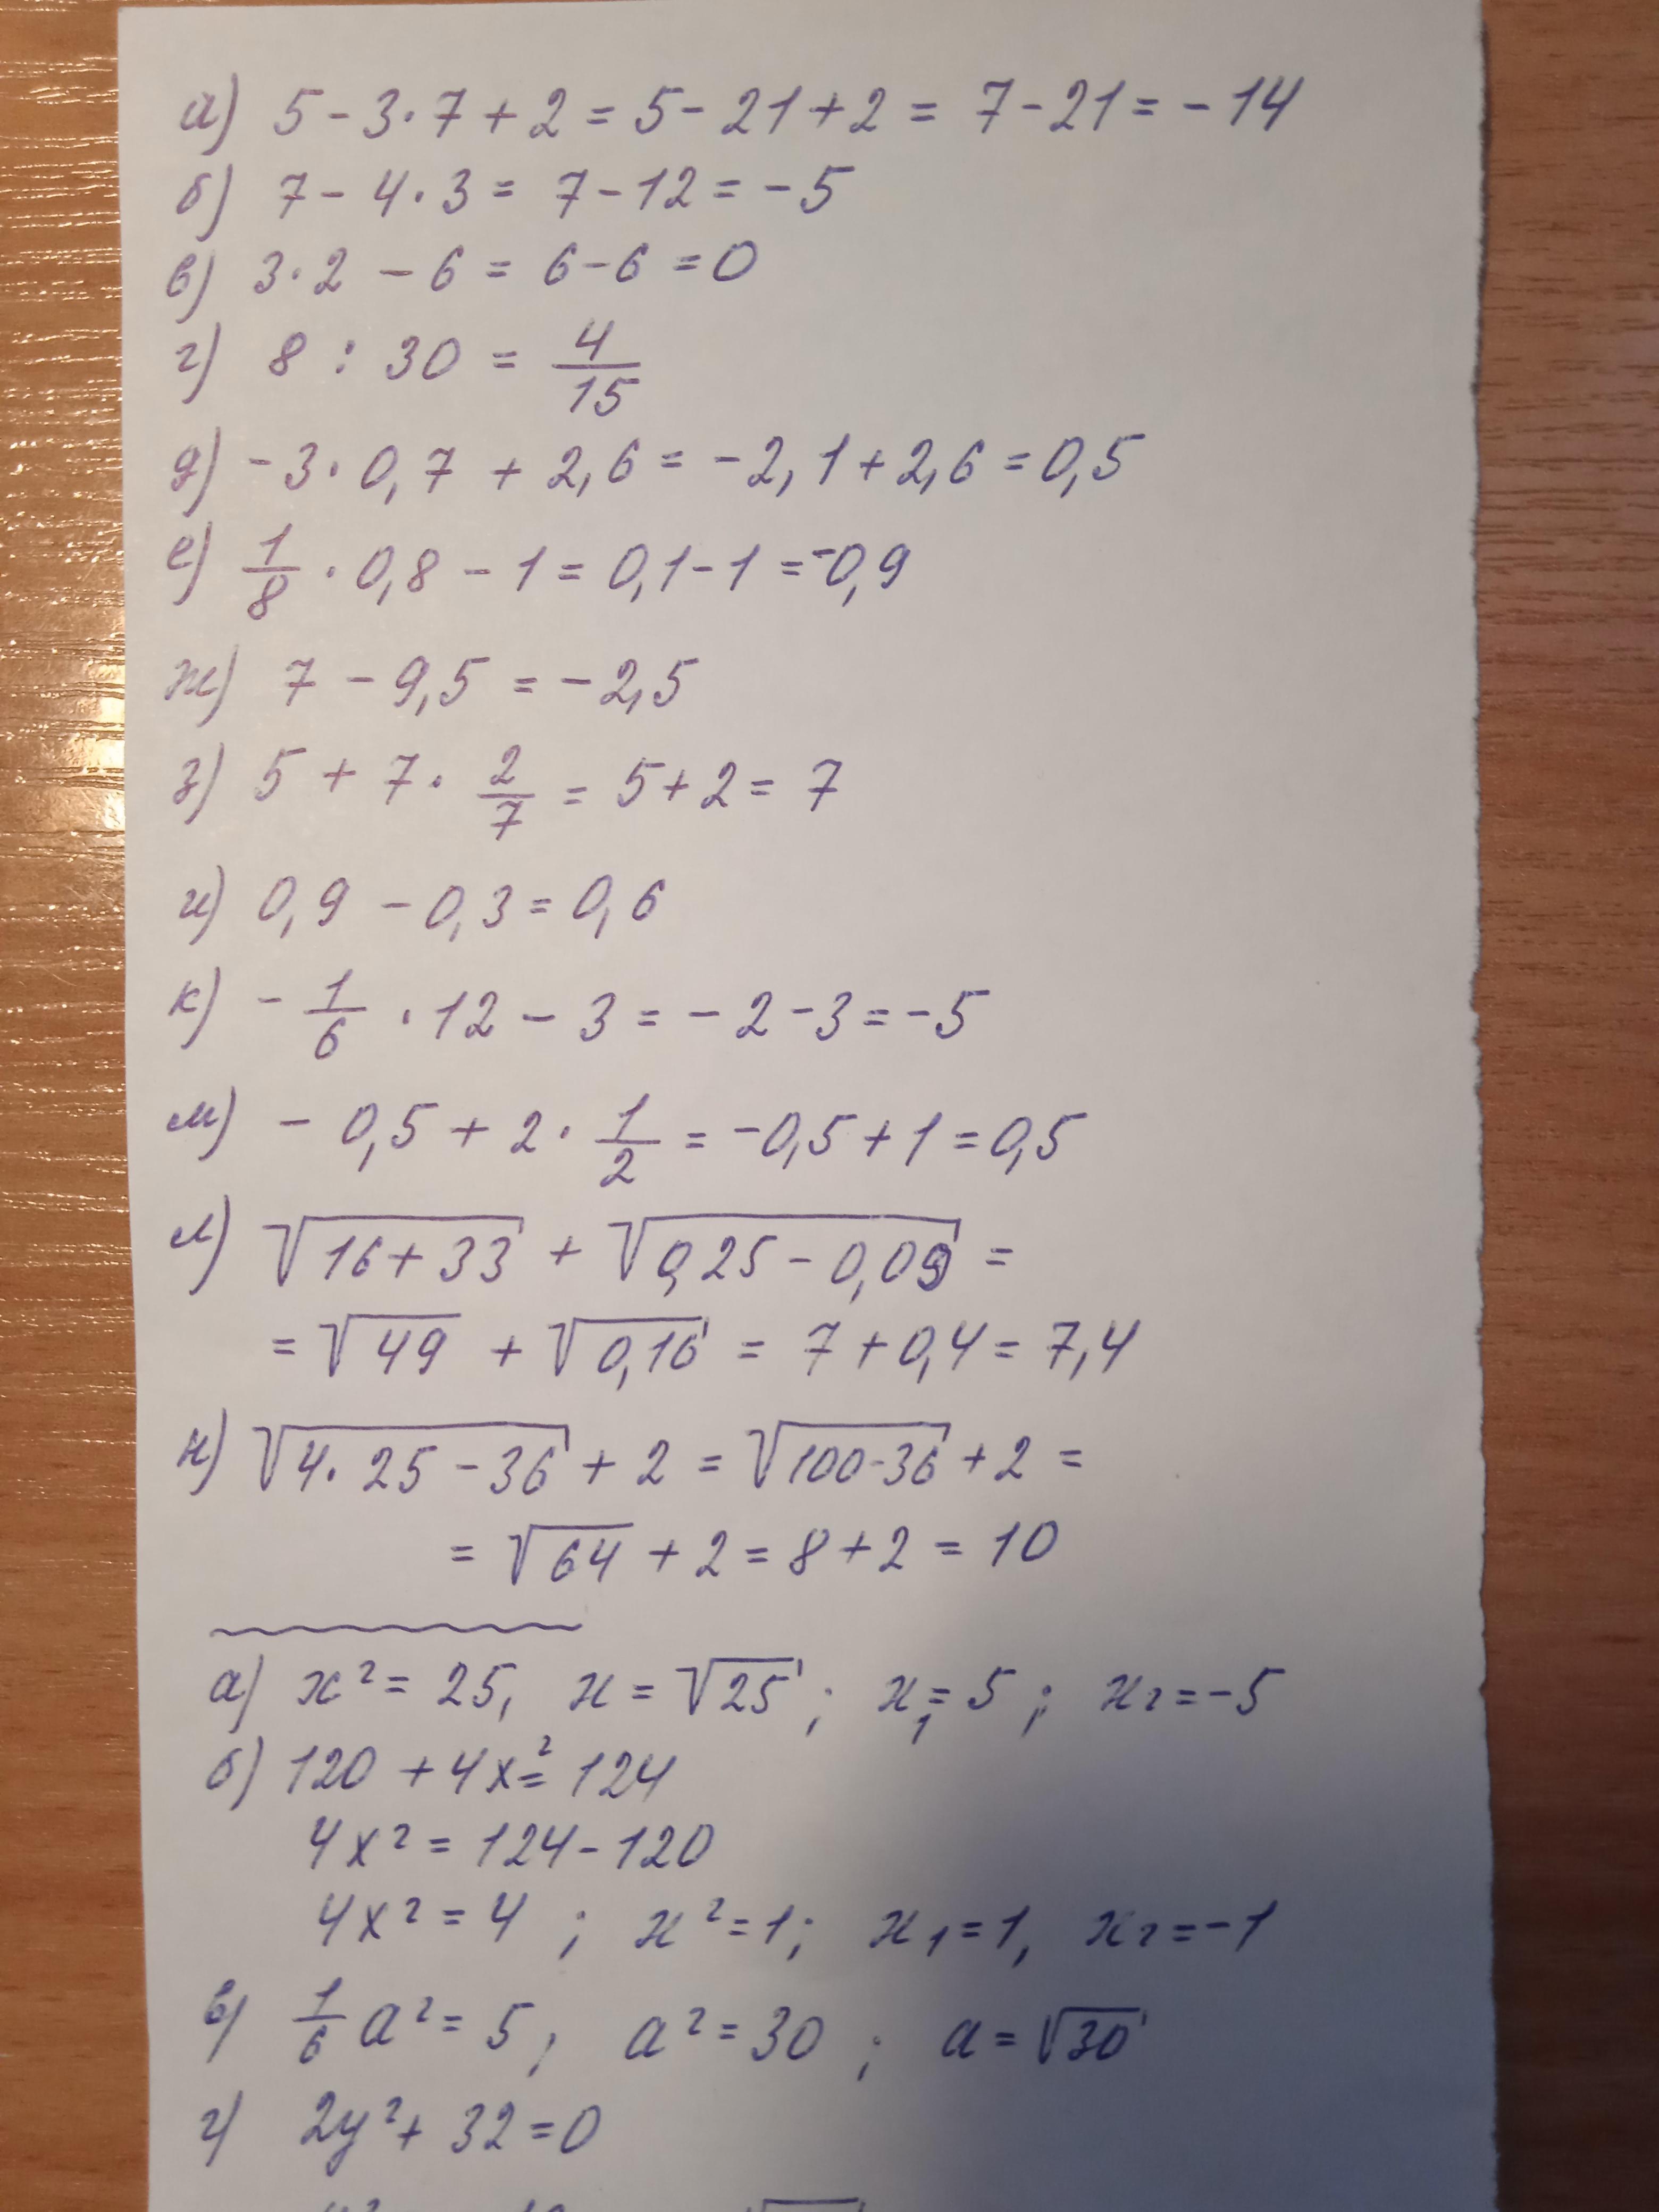 а) 5 - 3·7 + 2 = 5 - 21 + 2 = 7 - 21 = -14
б) 7 - 4·3 = 7 - 12 = -5
в) 3·2 - 6 = 6 - 6 = 0
г) 8 : 30 = 4/15
д) -3·0,7 + 2,6 = -2,1 + 2,6 = 0,5
е) 1/8 · 0,8 - 1 = 0,1 - 1 = -0,9
ж) 7 - 9,5 = -2,5
з) 5 + 7· 2/7 = 5 + 2 = 7
и) 0,9 - 0,3 = 0,6
к) - 1/6 · 12 - 3 = -2 - 3 = -5
м) - 0,5 + 2· 1/2 = -0,5 + 1 = 0,5
л) √(16 + 33) + √(0,25 - 0,09) =
= √49 + √0,16 = 7 + 0,4 = 7,4
н) √(4·25 - 36) + 2 = √(100-36) + 2 =
= √64 + 2 = 8 + 2 = 10
а) x² = 25, x = √25 ; x₁ = 5 ; x₂ = -5
б) 120 + 4x² = 124
4x² = 124 - 120
4x² = 4 ; x² = 1; x₁ = 1, x₂ = -1
в) 1/6 a² = 5 ; a² = 30 ; a = √30
г) 2y² + 32 = 0